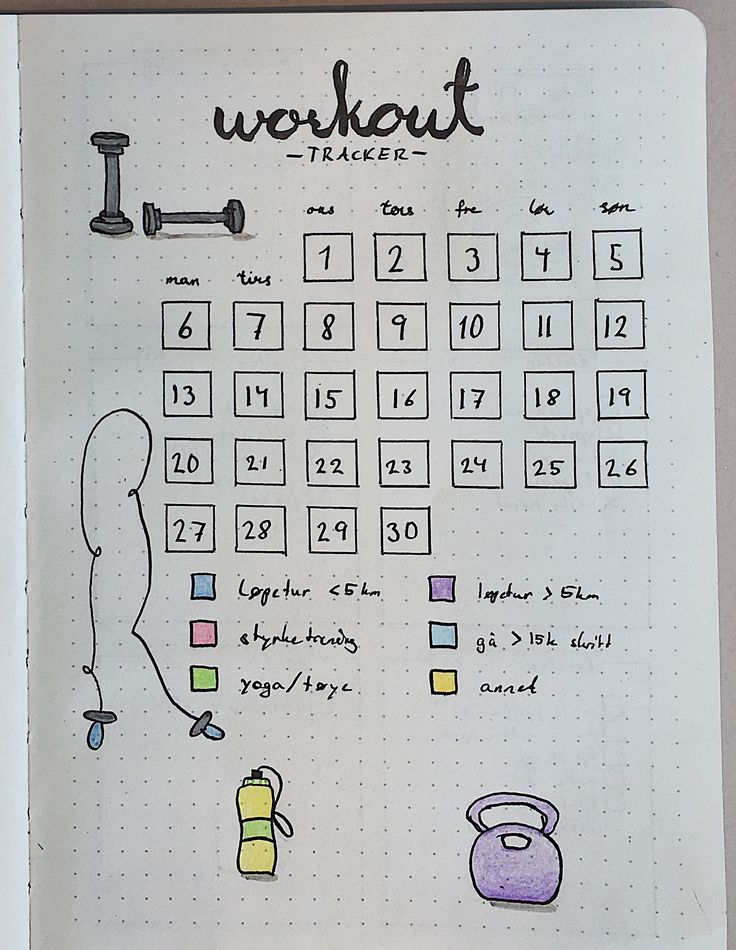 workout
-TRACKER-
ons tors fre lør søn
1 2 3 4 5
man tirs
6 7 8 9 10 11 12
13 14 15 16 17 18 19
20 21 22 23 24 25 26
27 28 29 30
løpetur <5km løpetur >5km
styrketrening gå >15k skritt
yoga/tøye annet